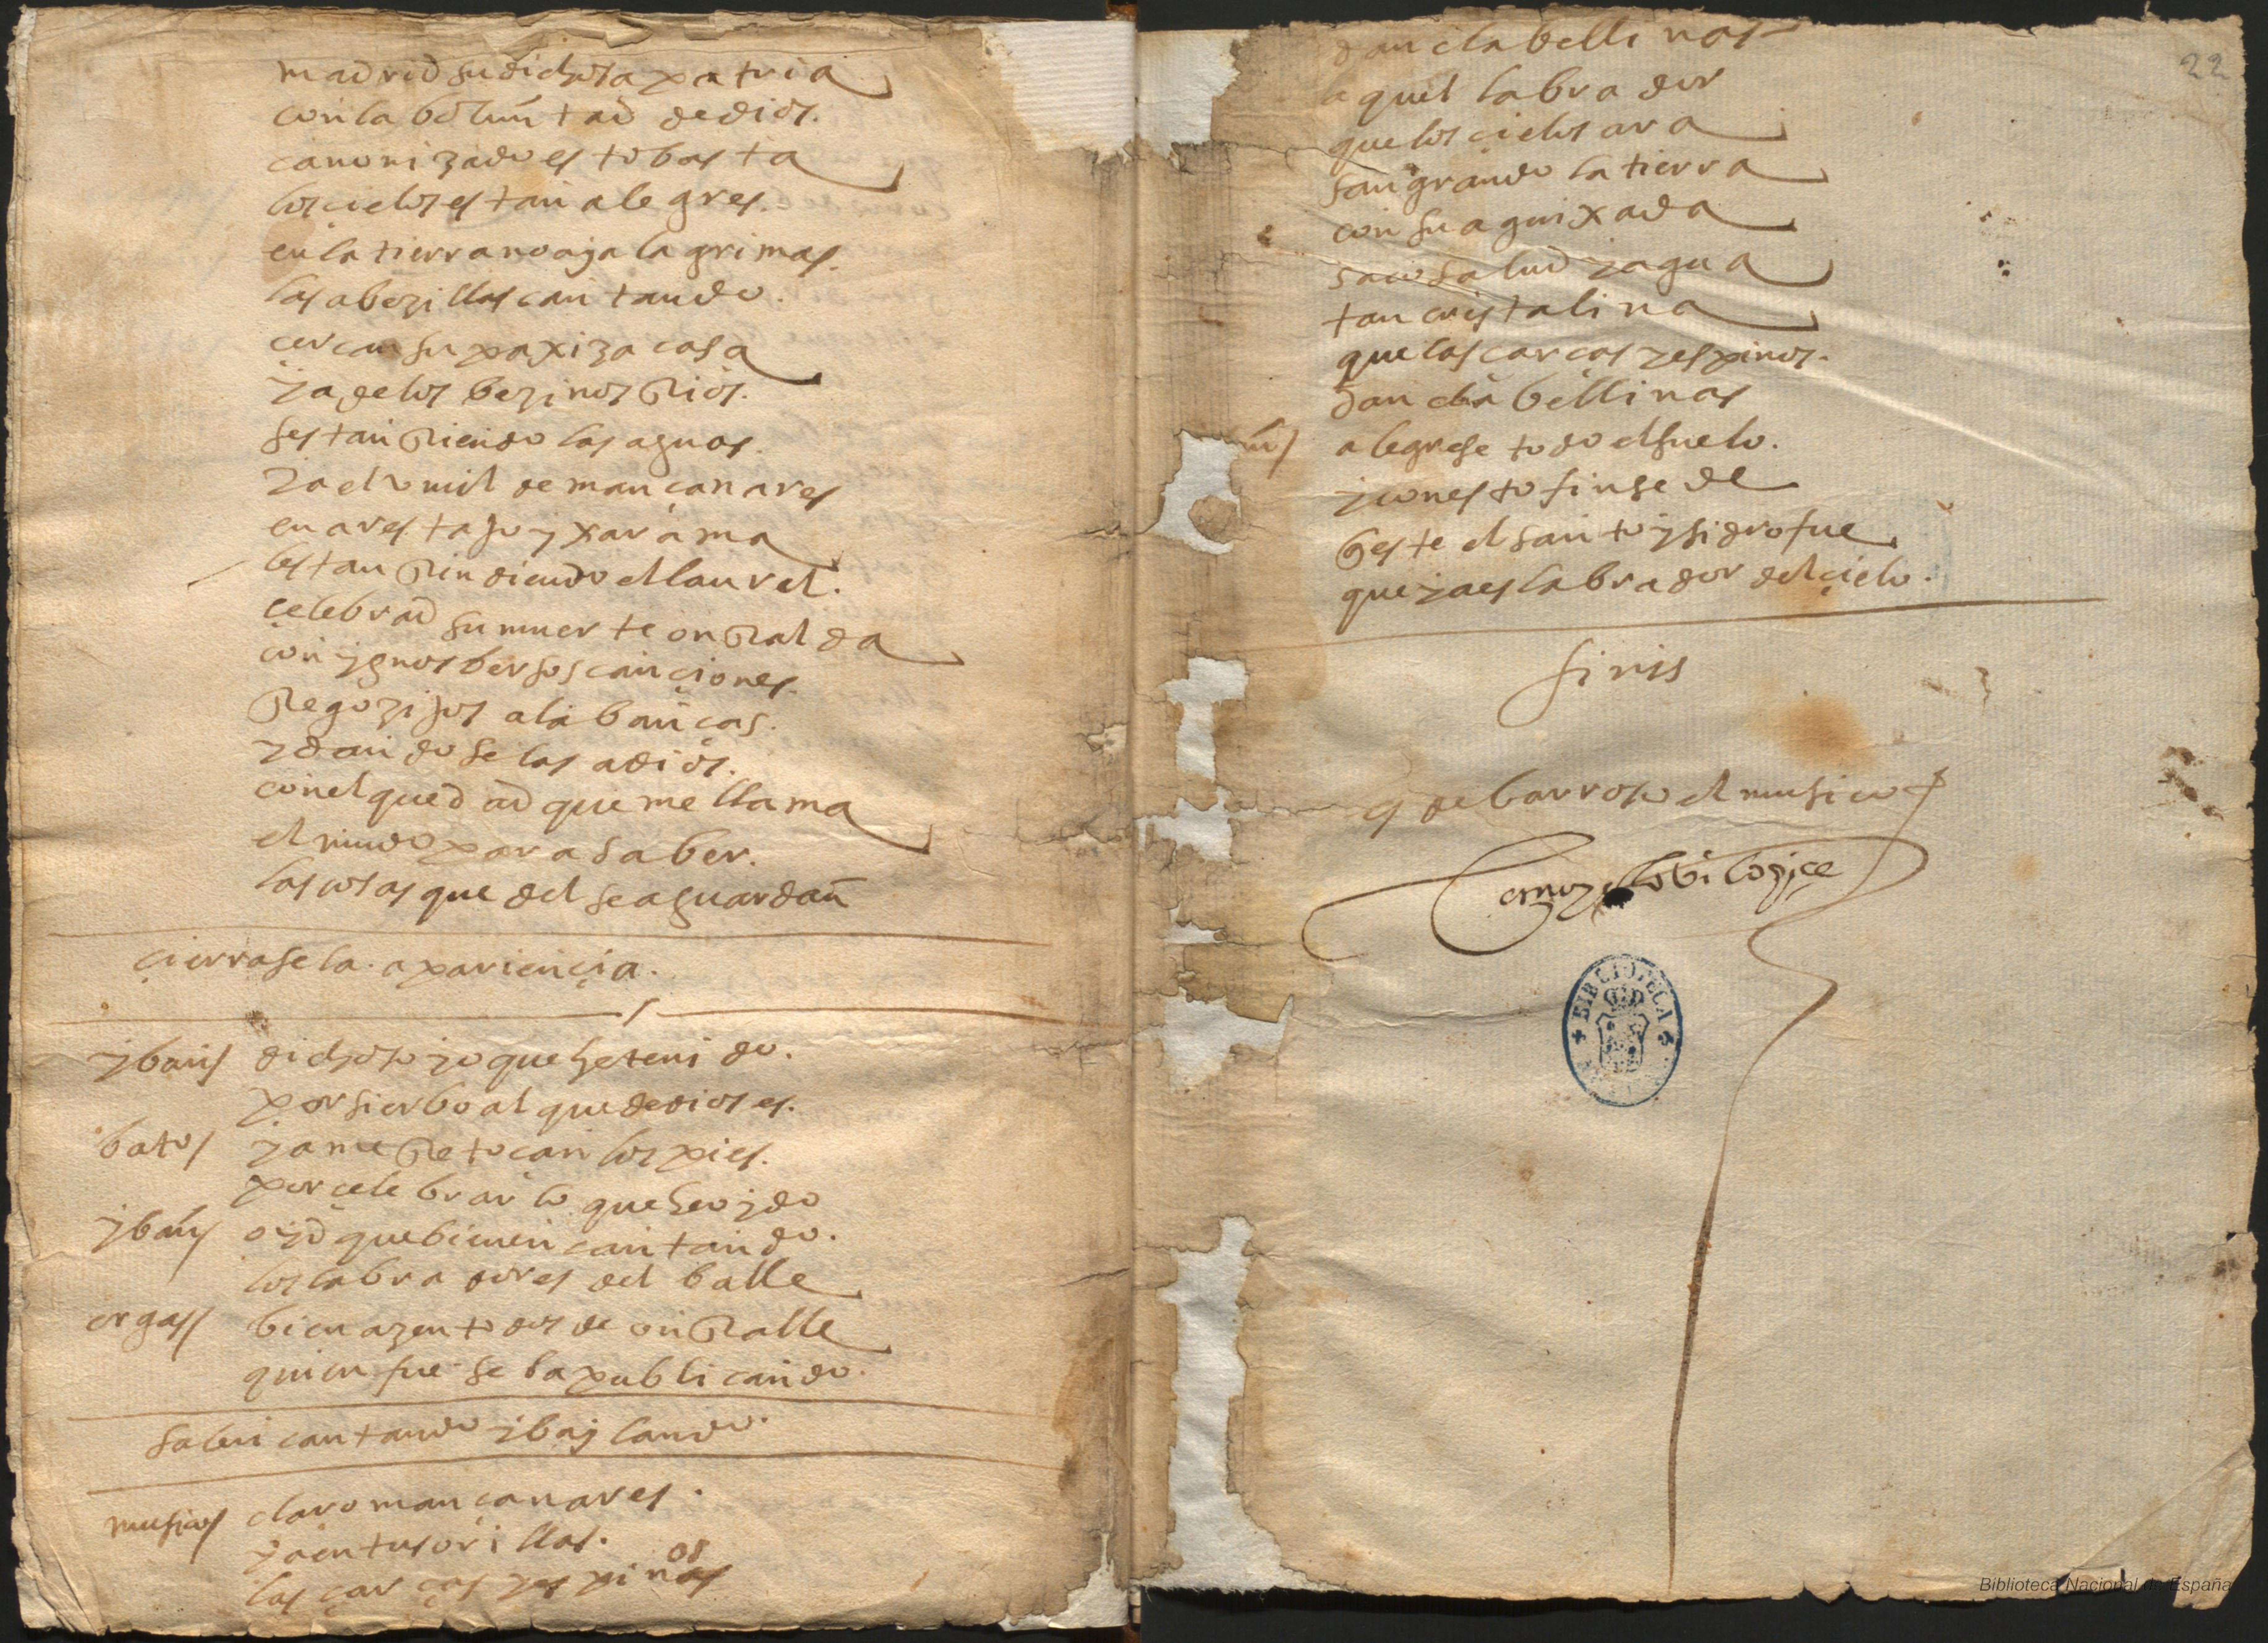 madrid su dichosa patria
con la boluntad de dios.
canonizado esto basta
los cielos estan alegres.
en la tierra no aja lagrimas.
las abezillas cantando.
cercan su paxiza casa
ya de los bezinos Rios.
se stan Riendo las aguas.
ya el umil de mançanares
enares tajo y xarama
le stan Rindiendo el laurel.
çelebrad su muerte onRalda
con ygnos bersos cançiones.
Regozijos alabanças.
y dandose las a dios.
con el quedad que me llama
el mudo para saber.
las cosas que del se aguardan
çierrase la apariençia.
yban dichoso yo que he tenido.
por sierbo al que de dios es.
bato ya me Retocan los pies.
por çelebrar lo que he oydo
yban oyd que bienen cantando.
los labradores del balle
orgas bien azen todos de onRalle
quien fue se ba publicando.
salen cantando y baylando.
musicos claro mançanares.
ya en tus orillas.
las çarças y espinas
os
dan clabellinas
aquel labrador
que los çielos ara
sangrando la tierra
con su aguixada
saco salud y agua
tan cristalina
que las çarças y espinos.
dan clabellinas
alegrese todo el suelo.
y con esto fin se de
q este el santo ysidro fue
que ya es labrador del çielo.
finis
de barroso el musico
BIBLIOTECA
22
Biblioteca Nacional de España